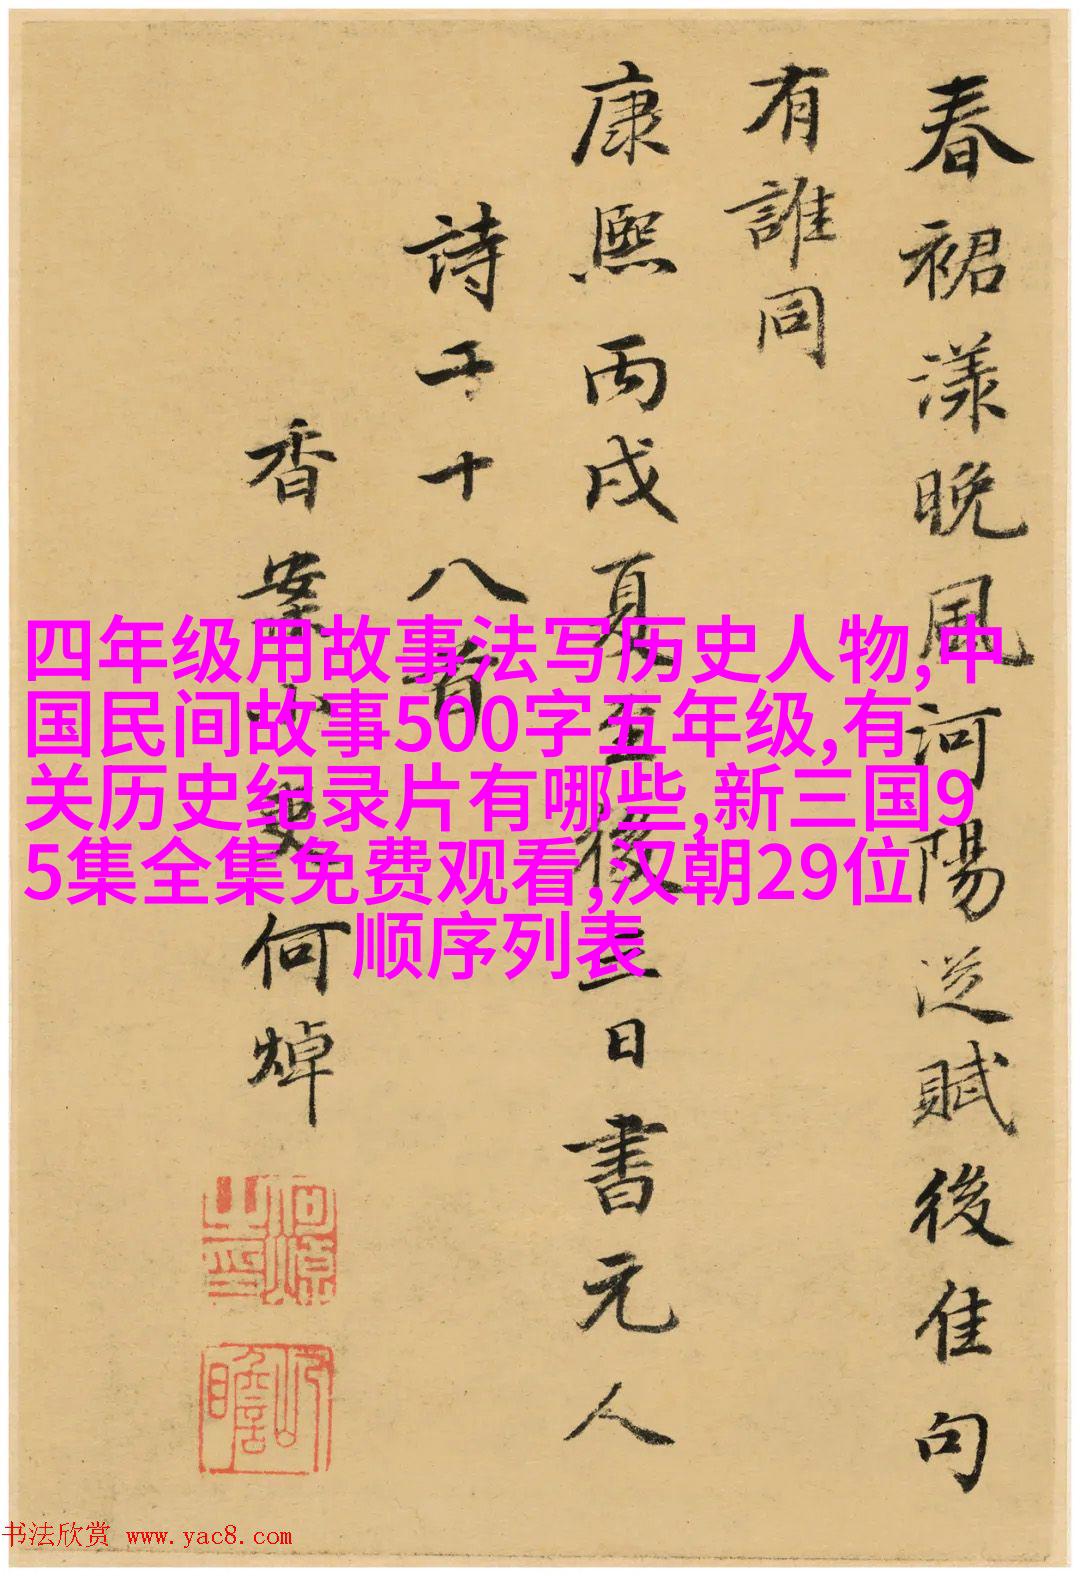 春裙漾晚風河陽從賦後佳句
有誰同
康熙丙戌夏五後三日書元人
詩二十八首
香案小吏何焯
四年级用故事法写历史人物,中
国民间故事500字五年级,有
关历史纪录片有哪些,新三国9
5集全集免费观看,汉朝29位
顺序列表
何焯之印
屺瞻
书法欣赏 www.yac8.com